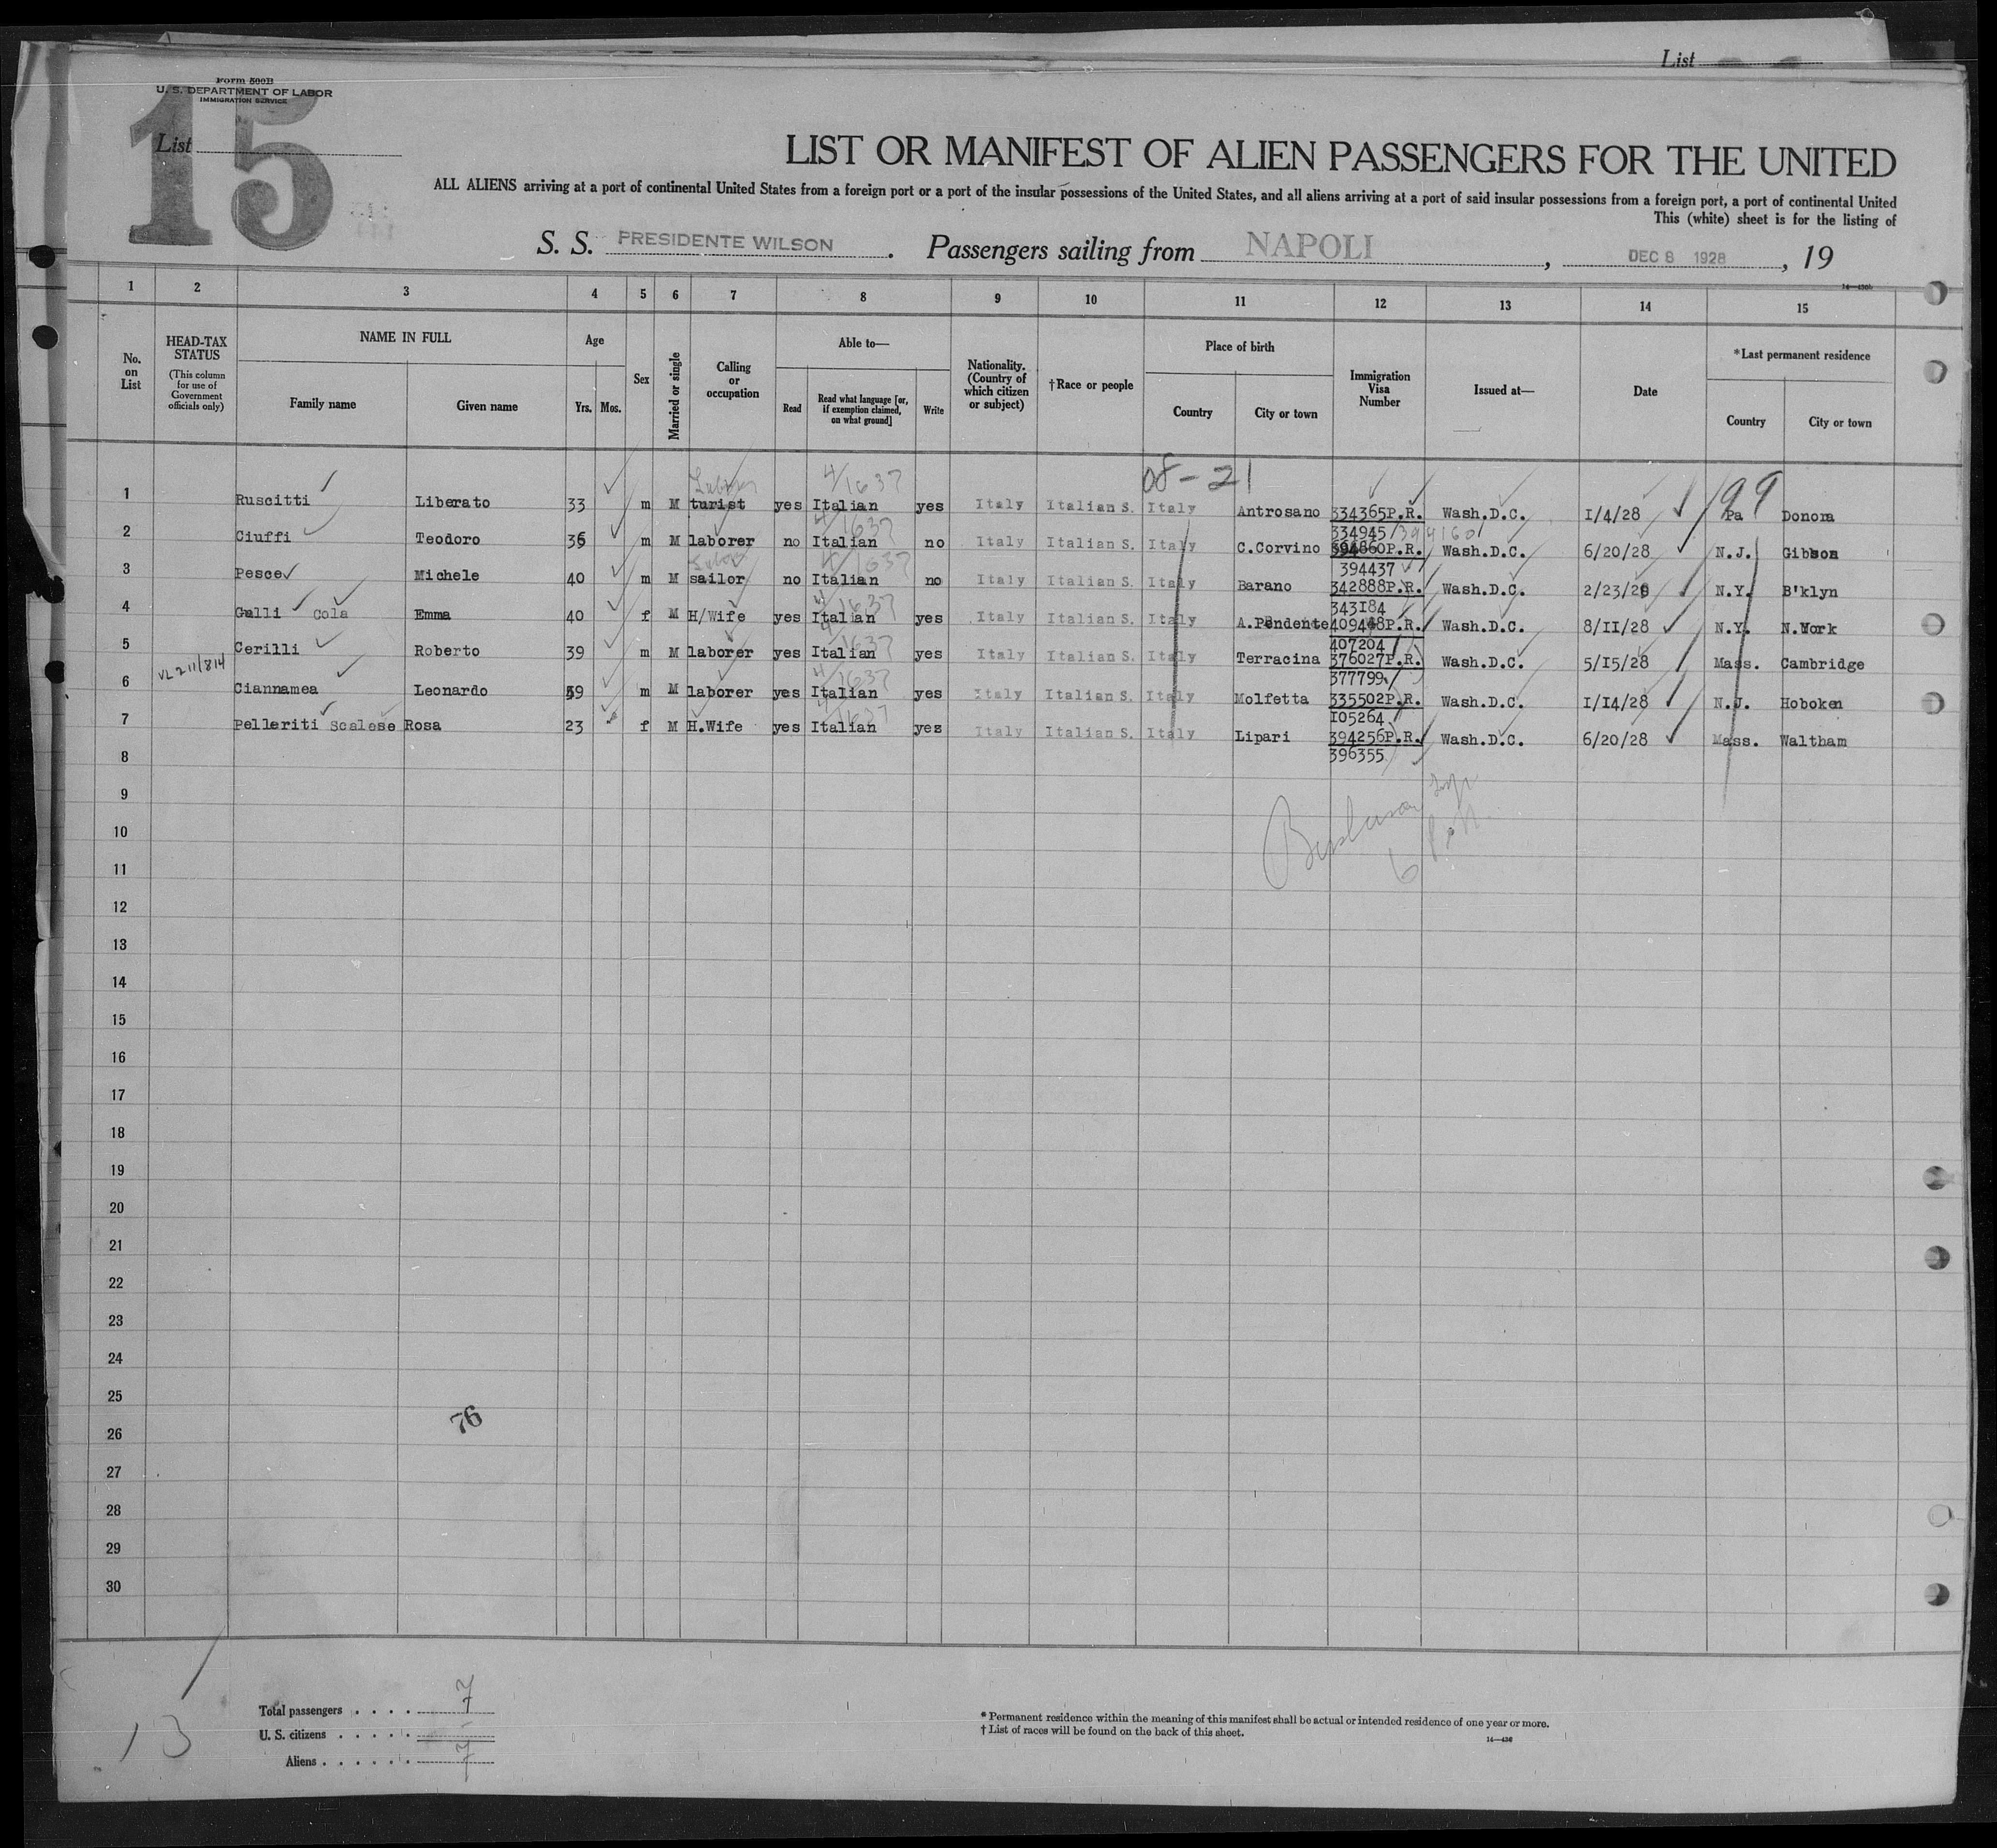 List
Form 500B
U. S. DEPARTMENT OF LABOR
IMMIGRATION SERVICE
List
15
LIST OR MANIFEST OF ALIEN PASSENGERS FOR THE UNITED
ALL ALIENS arriving at a port of continental United States from a foreign port or a port of the insular possessions of the United States, and all aliens arriving at a port of said insular possessions from a foreign port, a port of continental United
This (white) sheet is for the listing of
S. S. PRESIDENTE WILSON. Passengers sailing from NAPOLI, DEC 8 1928, 19
1 2 3 4 5 6 7 8 9 10 11 12 13 14 15
No. on List
HEAD-TAX STATUS
(This column for use of Government officials only)
NAME IN FULL
Family name Given name
Age
Yrs. Mos.
Sex
Married or single
Calling or occupation
Able to—
Read
Read what language [or, if exemption claimed, on what ground]
Write
Nationality. (Country of which citizen or subject)
†Race or people
Place of birth
Country City or town
Immigration Visa Number
Issued at—
Date
*Last permanent residence
Country City or town
08-21 99
1 Ruscitti Liberato 33 m M turist yes Italian yes Italy Italian S. Italy Antrosano 334365P.R. Wash.D.C. 1/4/28 Pa Donora
4/1637
334945
2 Ciuffi Teodoro 36 m M laborer no Italian no Italy Italian S. Italy C.Corvino P.R. Wash.D.C. 6/20/28 N.J. Gibson
4/1637 394160
394437
3 Pesce Michele 40 m M sailor no Italian no Italy Italian S. Italy Barano 342888P.R. Wash.D.C. 2/23/28 N.Y. B'klyn
4/1637
343184
4 Galli Cola Emma 40 f M H/Wife yes Italian yes Italy Italian S. Italy A.Pendente 409448P.R. Wash.D.C. 8/11/28 N.Y. N.York
4/1637
407204
5 Cerilli Roberto 39 m M laborer yes Italian yes Italy Italian S. Italy Terracina 376027P.R. Wash.D.C. 5/15/28 Mass. Cambridge
4/1637
377799
6 Ciannamea Leonardo 59 m M laborer yes Italian yes Italy Italian S. Italy Molfetta 335502P.R. Wash.D.C. 1/14/28 N.J. Hoboken
4/1637
105264
7 Pelleriti Scalese Rosa 23 f M H.Wife yes Italian yes Italy Italian S. Italy Lipari 394256P.R. Wash.D.C. 6/20/28 Mass. Waltham
4/1637
396355
8
9
10
11
12
13
14
15
16
17
18
19
20
21
22
23
24
25
26
76
27
28
29
30
13
Total passengers . . . . 7
U. S. citizens . . . . . –
Aliens . . . . . . 7
* Permanent residence within the meaning of this manifest shall be actual or intended residence of one year or more.
† List of races will be found on the back of this sheet.
14—430